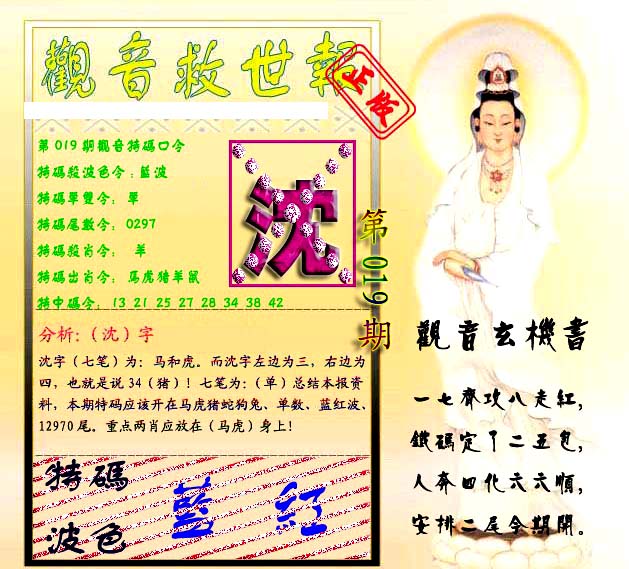 觀音救世報
正版
第019期觀音特碼口令
特碼殺波色令：藍波
特碼單雙令： 單
特碼尾數令： 0297
特碼殺肖令： 羊
特碼出肖令： 馬虎猪羊鼠
特中碼令： 13 21 25 27 28 34 38 42
沈
第019期
分析：（沈）字
沈字（七笔）为：马和虎。而沈字左边为三，右边为
四，也就是说34（猪）！七笔为：（单）总结本报资
料，本期特码应该开在马虎猪蛇狗兔、单数、蓝红波、
12970尾。重点两肖应放在（马虎）身上！
特碼
波色
藍 紅
觀音玄機書
一七齊攻八走紅，
鐵碼定丫二五包，
人奔四化六六順，
安排二尾令期開。